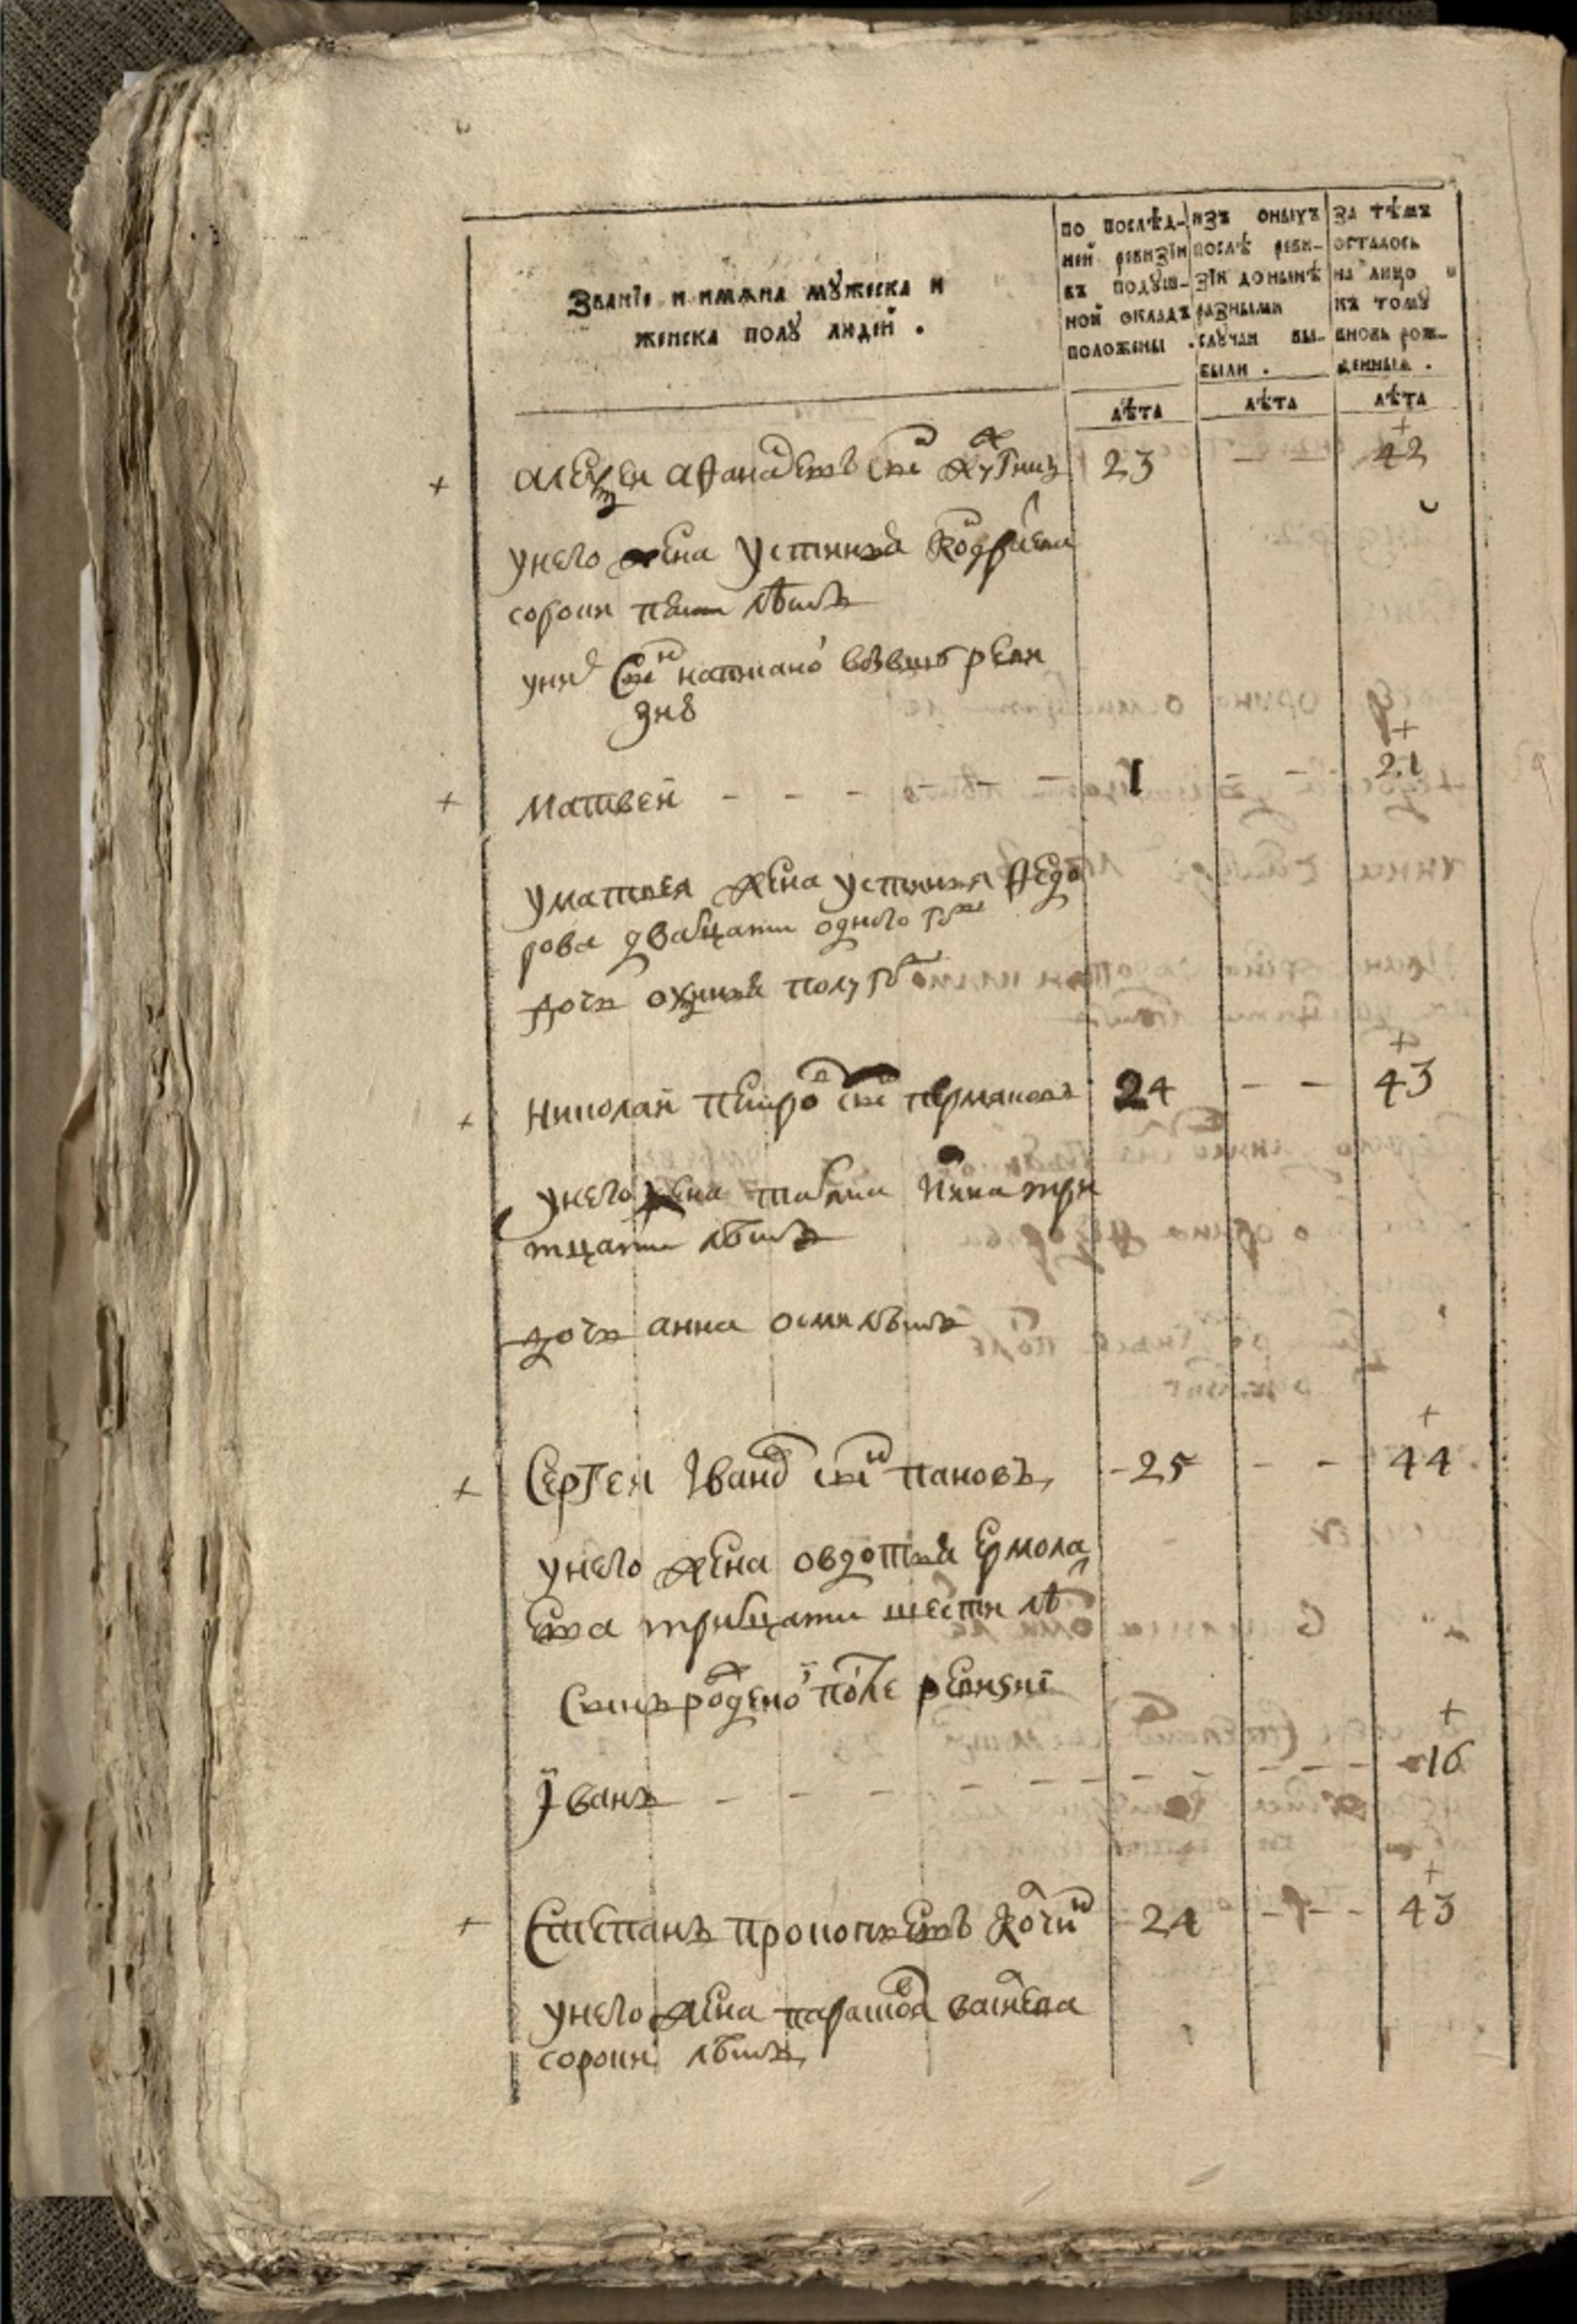 Званїе и имяна мужеска и
женска полу людей .
по послѣд-
ней ревизїи
въ подуш-
ной окладъ
положены .
изъ оныхъ
послѣ реви-
зїи до нынѣ
разными
случаи вы-
были .
За тѣмъ
осталось
на лицо и
къ тому
вновь рож-
денныя .
лѣта лѣта лѣта
Алеѯеи Афанасьевъ снъ 23 - - 42
унего жена Устинья
сорокъ пети лѣтъ
унихъ снъ написано вбывшую реви
зию
Матвей - - - 1 - - 21
у Матвея жена Устинья Федо
рова двадцати одного году
дочь полугоду
Николай Петровъ снъ Пермяковъ 24 - - 43
унего жена три
тцати лѣтъ
дочь анна осми лѣтъ
Сергеи Ивановъ снъ пановъ 25 - - 44
унего жена овдотья Ермола
ева тритцати шести лѣ
Сынъ рожденои после ревизиї
Їванъ - - - 16
Степанъ прокопьевъ 24 - - - 43
унего жена парасковья
сорока лѣтъ